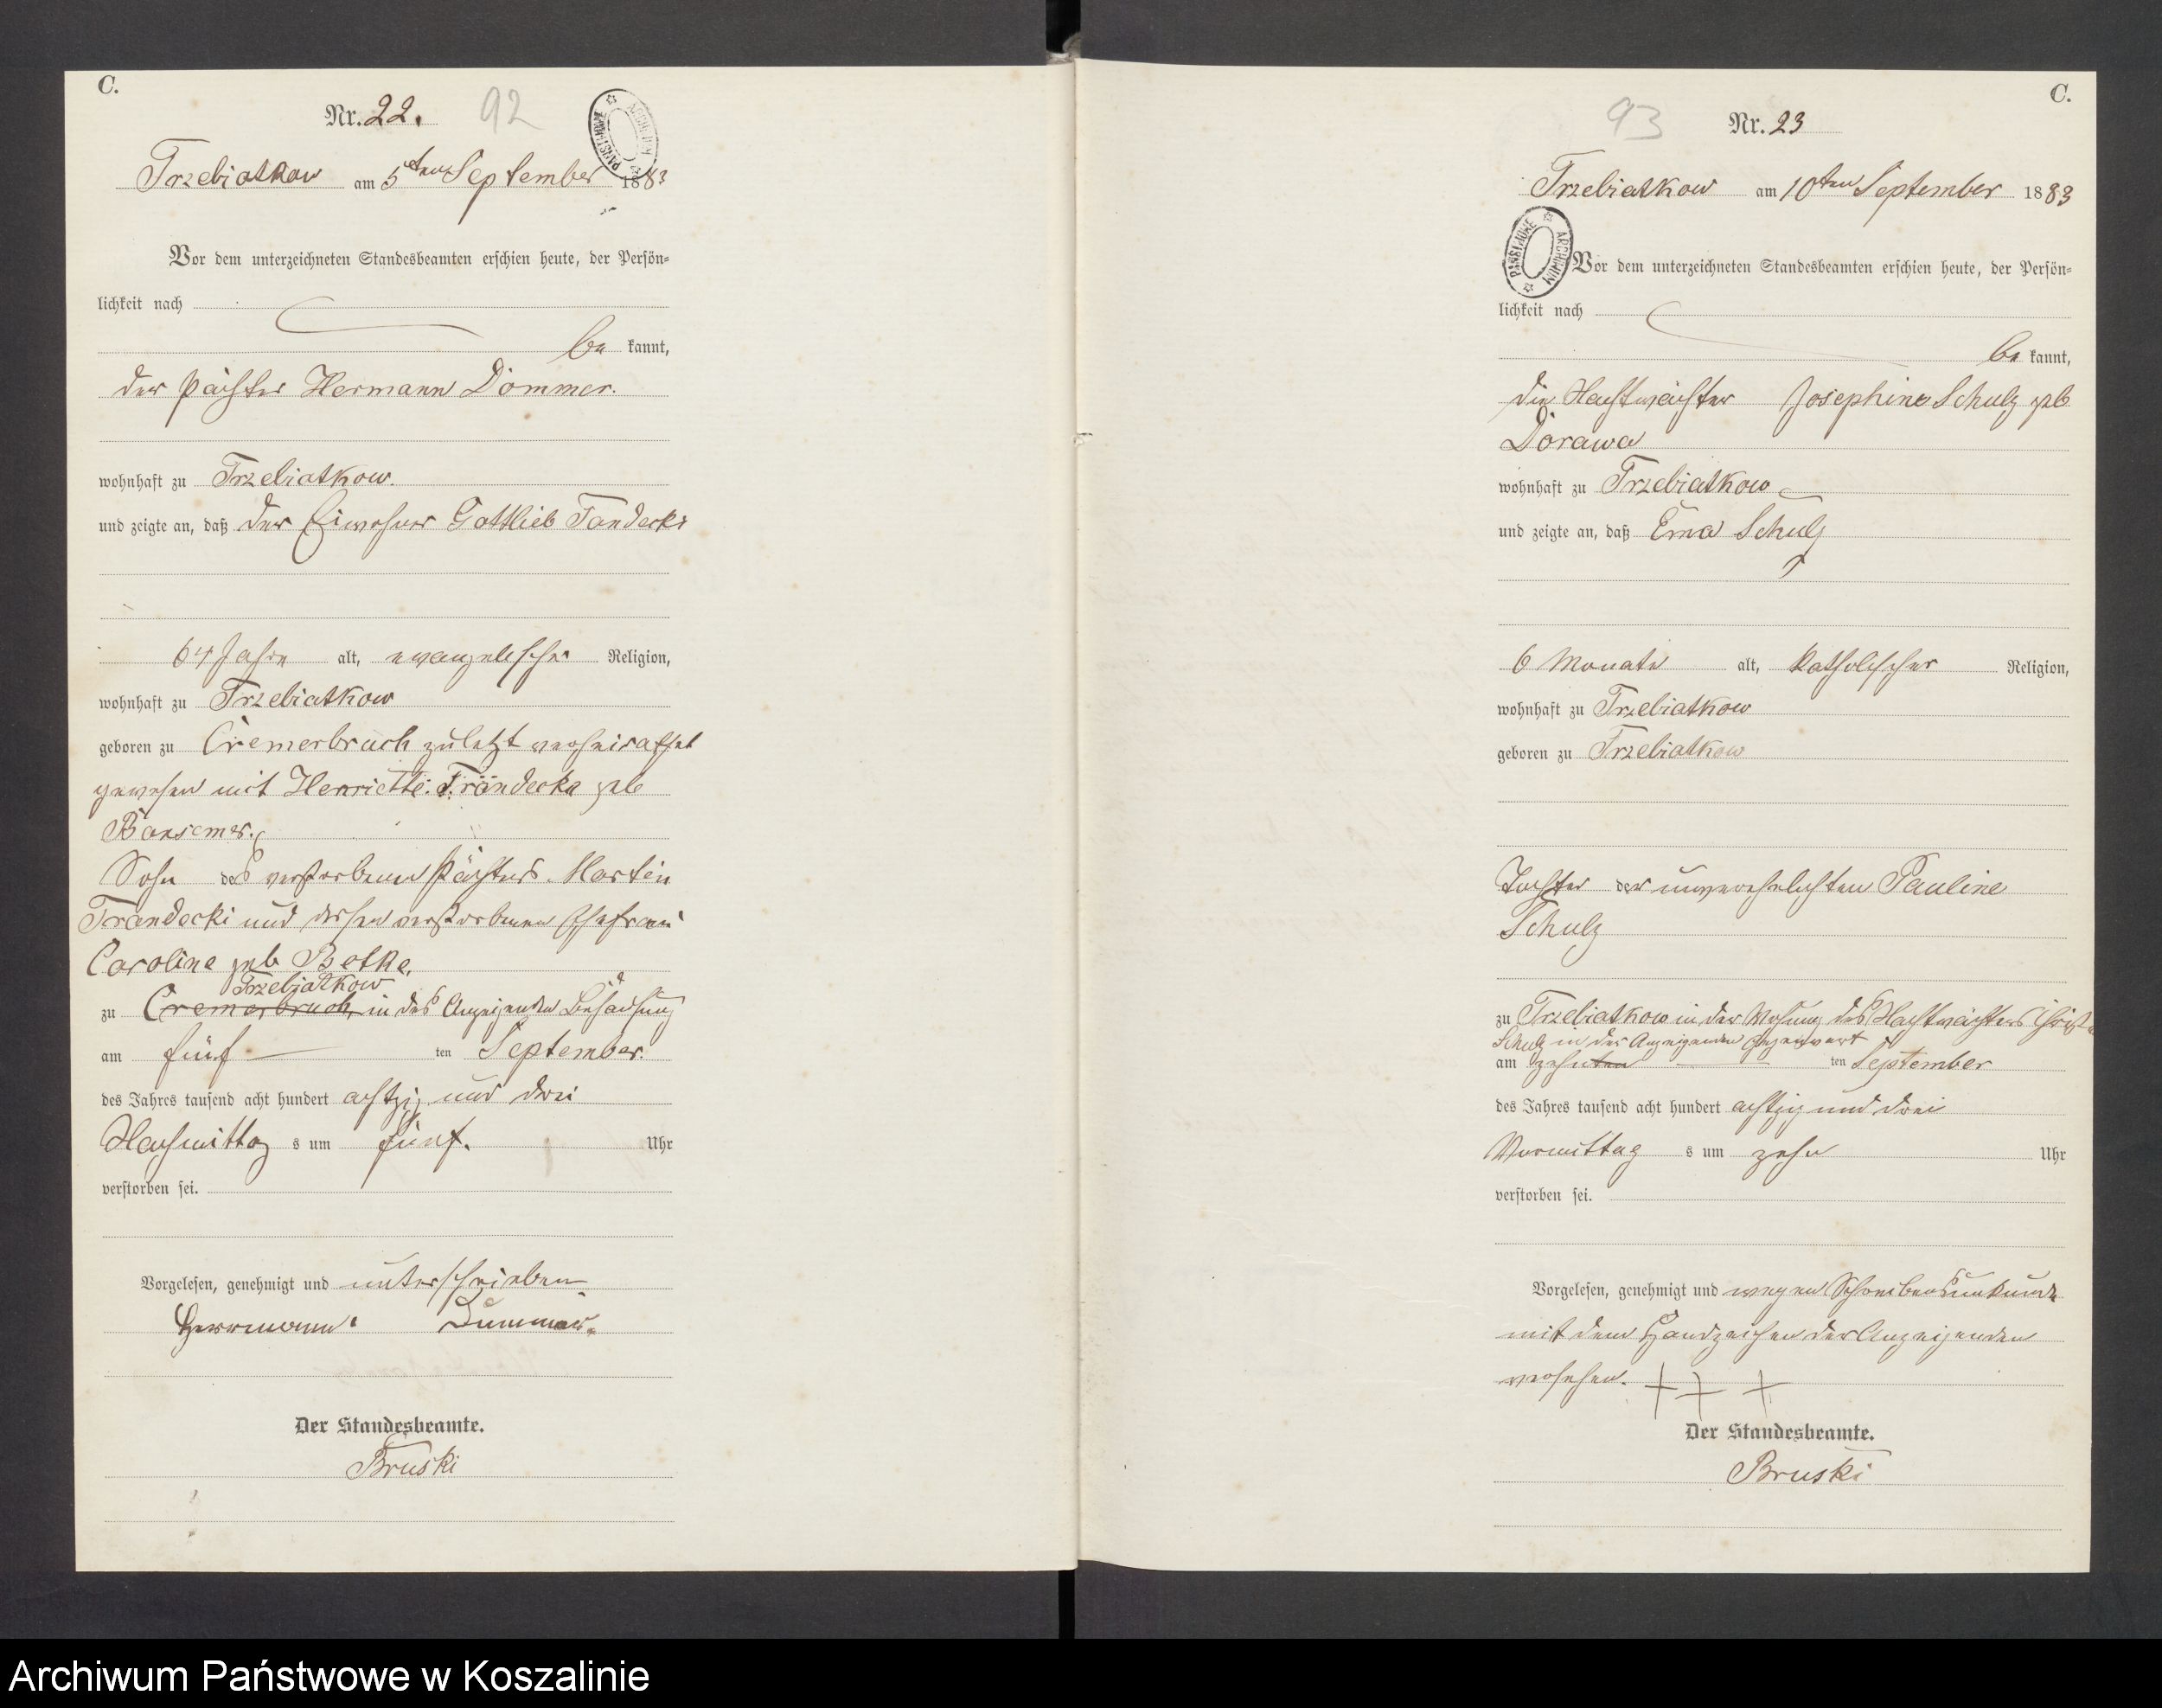 C.
Nr. 22. 92
ARCHIWUM PAŃSTWOWE
Trzebiatkow am 5ten September 1883
Vor dem unterzeichneten Standesbeamten erschien heute, der Persön-
lichkeit nach
be kannt,
der Pächter Hermann Dommer.
wohnhaft zu Trzebiatkow.
und zeigte an, daß der Eiwohner Gottlieb Tandecki
64 Jahre alt, evangelischer Religion,
wohnhaft zu Trzebiatkow
geboren zu Cremerbruch zuletzt verheirathet
gewesen mit Henriette Trandecka geb
Bansemer.
Sohn des verstorbenen Pächters Martin
Trandecki und dessen verstorbenen Ehefrau
Caroline geb Betke.
Trzebiatkow
zu Cremerbruch, in des Anzeigenden Behausung
am fünf ten September
des Jahres tausend acht hundert achtzig und drei
Nachmittag s um fünf. Uhr
verstorben sei.
Vorgelesen, genehmigt und unterschrieben
Herrmann Dummer.
Der Standesbeamte.
Bruski
C.
93 Nr. 23
Trzebiatkow am 10ten September 1883
ARCHIWUM PAŃSTWOWE
Vor dem unterzeichneten Standesbeamten erschien heute, der Persön-
lichkeit nach
be kannt,
die Nachtwächter Josephine Schulz geb
Dorawa
wohnhaft zu Trzebiatkow
und zeigte an, daß Ema Schulz
6 Monate alt, katholischer Religion,
wohnhaft zu Trzebiatkow
geboren zu Trzebiatkow
Tochter der unverehelichten Pauline
Schulz
zu Trzebiatkow in der Wohnung des Nachtwächters
Schulz in der Anzeigenden Gegenwart
am zehnten ten September
des Jahres tausend acht hundert achtzig und drei
Vormittag s um zehn Uhr
verstorben sei.
Vorgelesen, genehmigt und wegen Schreibensunkunde
mit dem Handzeichen der Anzeigenden
versehen. +++
Der Standesbeamte.
Bruski
Archiwum Państwowe w Koszalinie